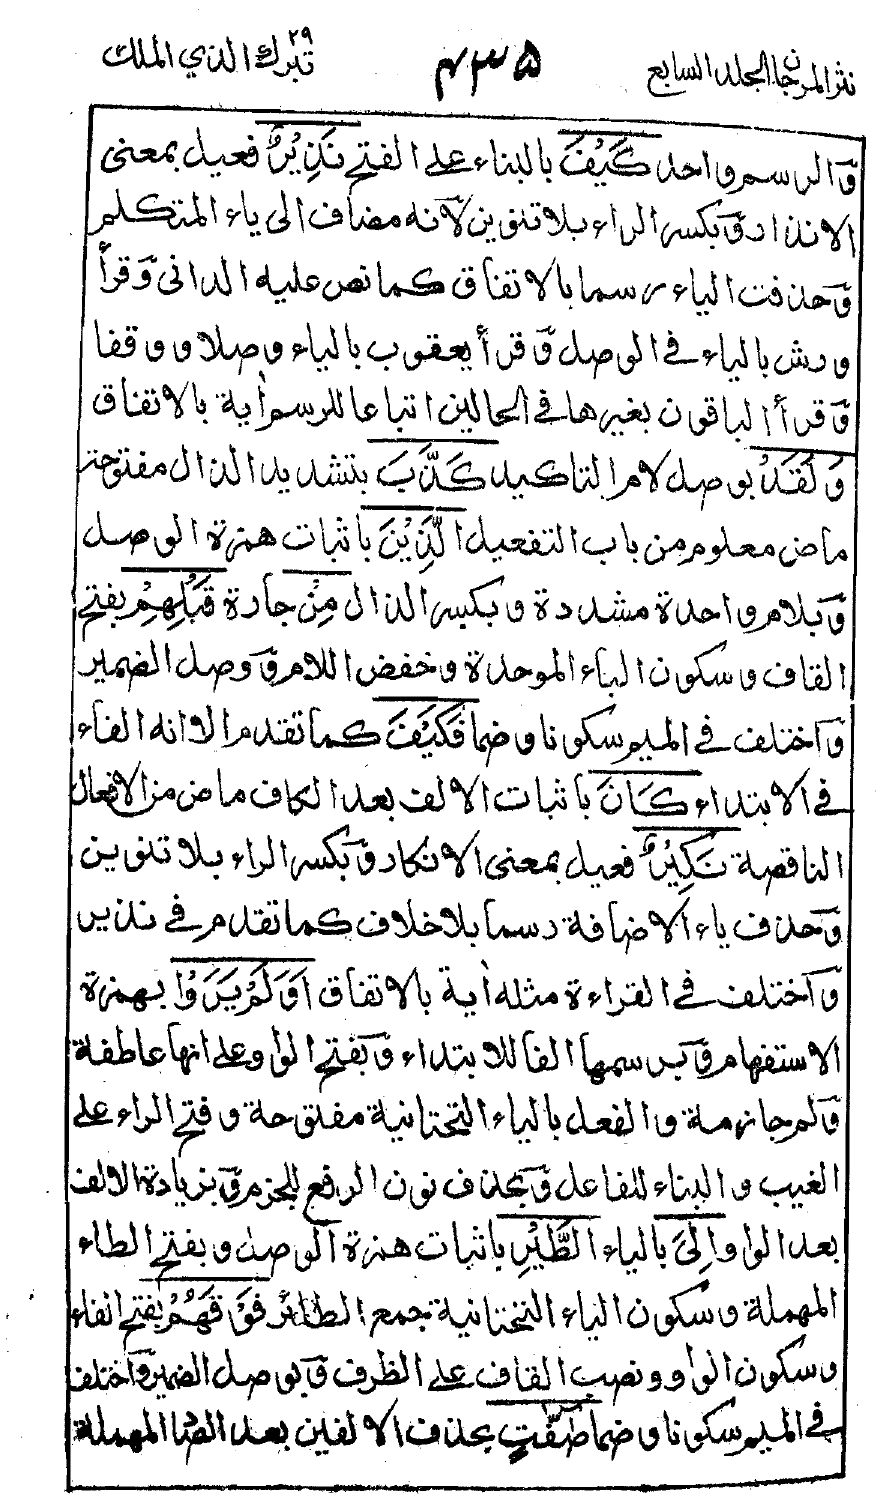 نثر المرجان المجلد السابع
۴۳۵
تبرك الذي الملك ۲۹
وَالرسم واحد كَيْفَ بالبناء على الفتح نَذِيْرِ فعيل بمعنى
الانذار وَبكسر الراء بلا تنوين لَانه مضاف الى ياء المتكلم
وَحذفت الياء رسما بالاتفاق كما نص عليه الدانى وَقرأ
ورش بالياء فى الوصل وَقرأ يعقوب بالياء وصلا ووقفا
وَقرأ الباقون بغيرها فى الحالين اتباعا للرسم اٰية بالاتفاق
وَلَقَدْ بوصل لام التاكيد كَذَّبَ بتشديد الذال مفتوحة
ماض معلوم من باب التفعيل الَّذِيْنَ باثبات همزة الوصل
وَبلام واحدة مشددة وبكسر الذال مِنْ جارة قَبْلِهِمْ بفتح
القاف وسكون الباء الموحدة وخفض اللام وَوصل الضمير
وَاختلف فى الميم سكونا وضما فَكَيْفَ كما تقدم الا انه الفاء
فى الابتداء كَانَ باثبات الالف بعد الكاف ماض من الافعال
الناقصة نَكِيْرِ فعيل بمعنى الانكار وَبكسر الراء بلا تنوين
وَحذف ياء الاضافة رسما بلا خلاف كما تقدم فى نذير
وَاختلف فى القراءة مثله اٰية بالاتفاق اَوَلَمْ يَرَوْا بهمزة
الاستفهام وَبرسمها الفا للابتداء وَبفتح الواو على انها عاطفة
وَلم جازمة والفعل بالياء التحتانية مفتوحة وفتح الراء على
الغيب والبناء للفاعل وَبحذف نون الرفع للجزم وَبزيادة الالف
بعد الواو اِلَى بالياء الطَّيْرِ باثبات همزة الوصل وبفتح الطاء
المهملة وسكون الياء التحتانية جمع الطائر فَوْقَهُمْ بفتح الفاء
وسكون الواو ونصب القاف على الظرف وَبوصل الضمير وَاختلف
فى الميم سكونا وضما صٰٓفّٰتٍ بحذف الالفين بعد الصاد المهملة